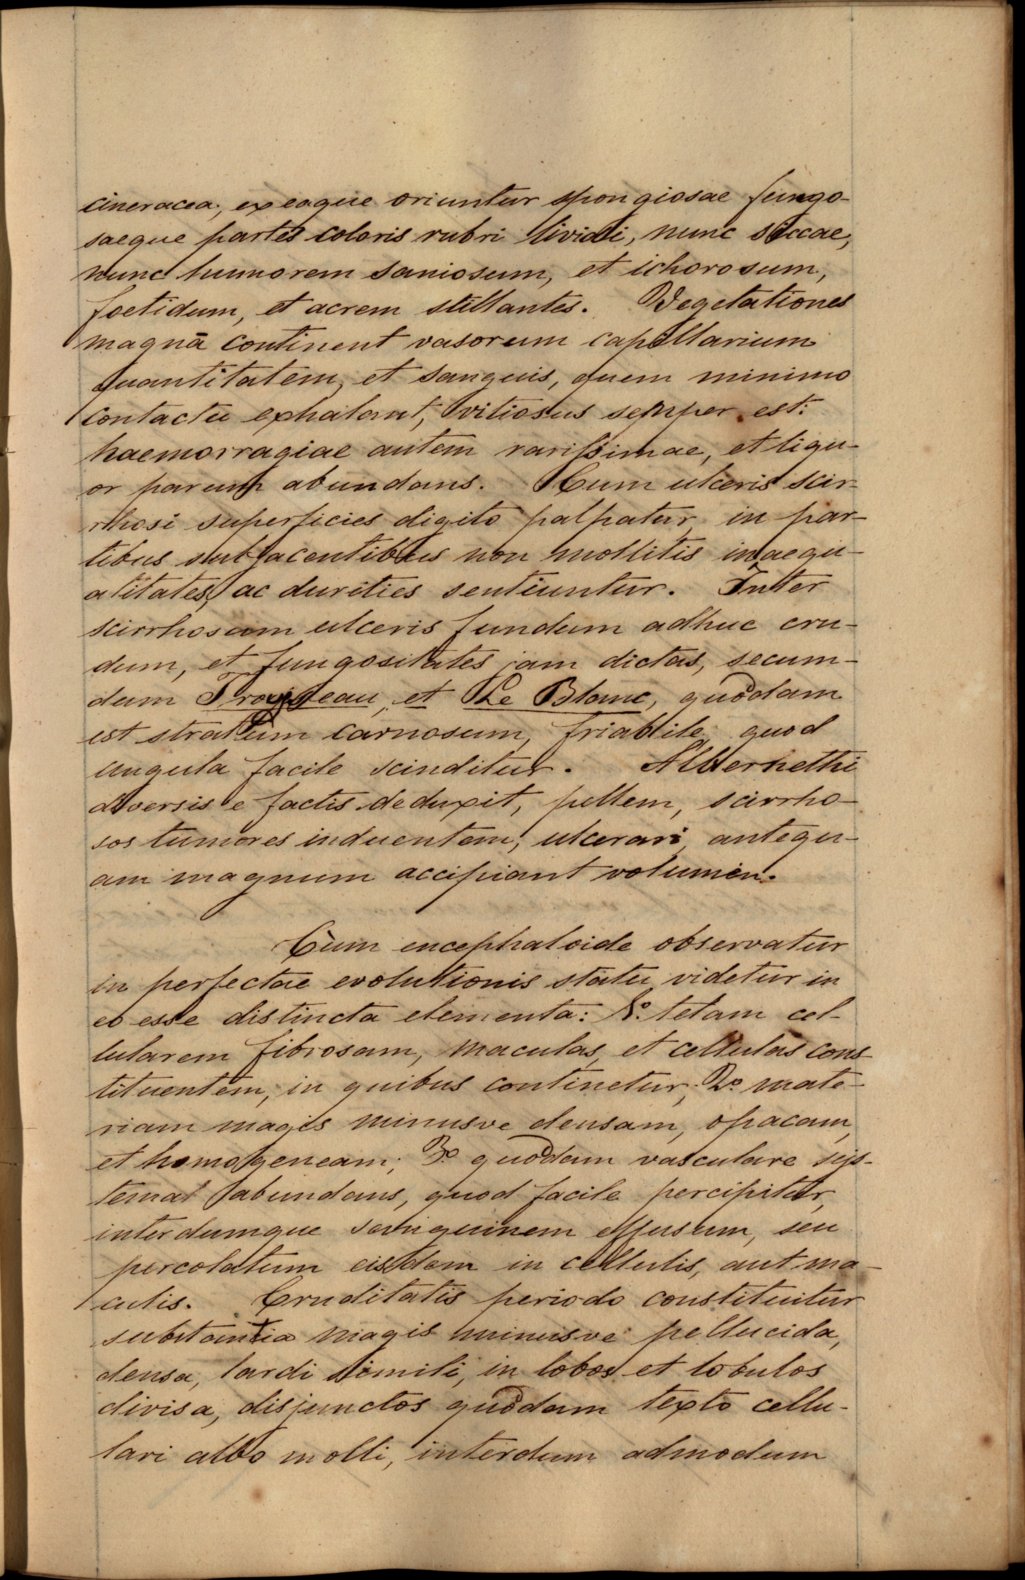 cineracea; ex eoque oriuntur spongiosae fungo-
saeque partes coloris rubri lividi, nunc siccae,
nunc humorem saniosum, et ichorosum,
foetidum, et acrem stillantes. Vegetationes
magnā continent vasorum capillarium
quantitatem, et sanguis, quem minimo
contactu exhalant, vitiosus semper est:
haemorragiae autem rarissimae, et liqu-
or parum abundans. Cum ulceris scir-
rhosi superficies digito palpatur, in par-
tibus subjacentibus non mollitis inaequ-
alitates, ac durities sentiuntur. Inter
scirrhosum ulceris fundum adhuc cru-
dum, et fungositates jam dictas, secum-
dum Trousseau, et Le Blanc, quodam
est stratum carnosum, friabile, quod
ungula facile scinditur. Albernethi
diversis e factis deduxit, pellem, scirrho-
sos tumores induentem, ulcerari, antequ-
am magnum accipiant volumen.
Cùm encephaloide observatur
in perfectae evolutionis statu, videtur in
eo esse distincta elementa: 1.º telam cel-
lularem fibrosam, maculas, et cellulas cons-
tituentem, in quibus continetur; 2.º mate-
riam magis minusve densam, opacam,
et homogeneam; 3.º quodam vasculare sys-
tema abundans, quod facile percipitur,
interdumque sanguinem effusum, seu
percolatum eisdem in cellulis, aut ma-
culis. Cruditatis periodo constituitur
substantia magis minusve pellucida,
densa, lardi simili, in lobos et lobulos
divisa, disjunctos quodam texto cellu-
lari albo molli, interdum admodum